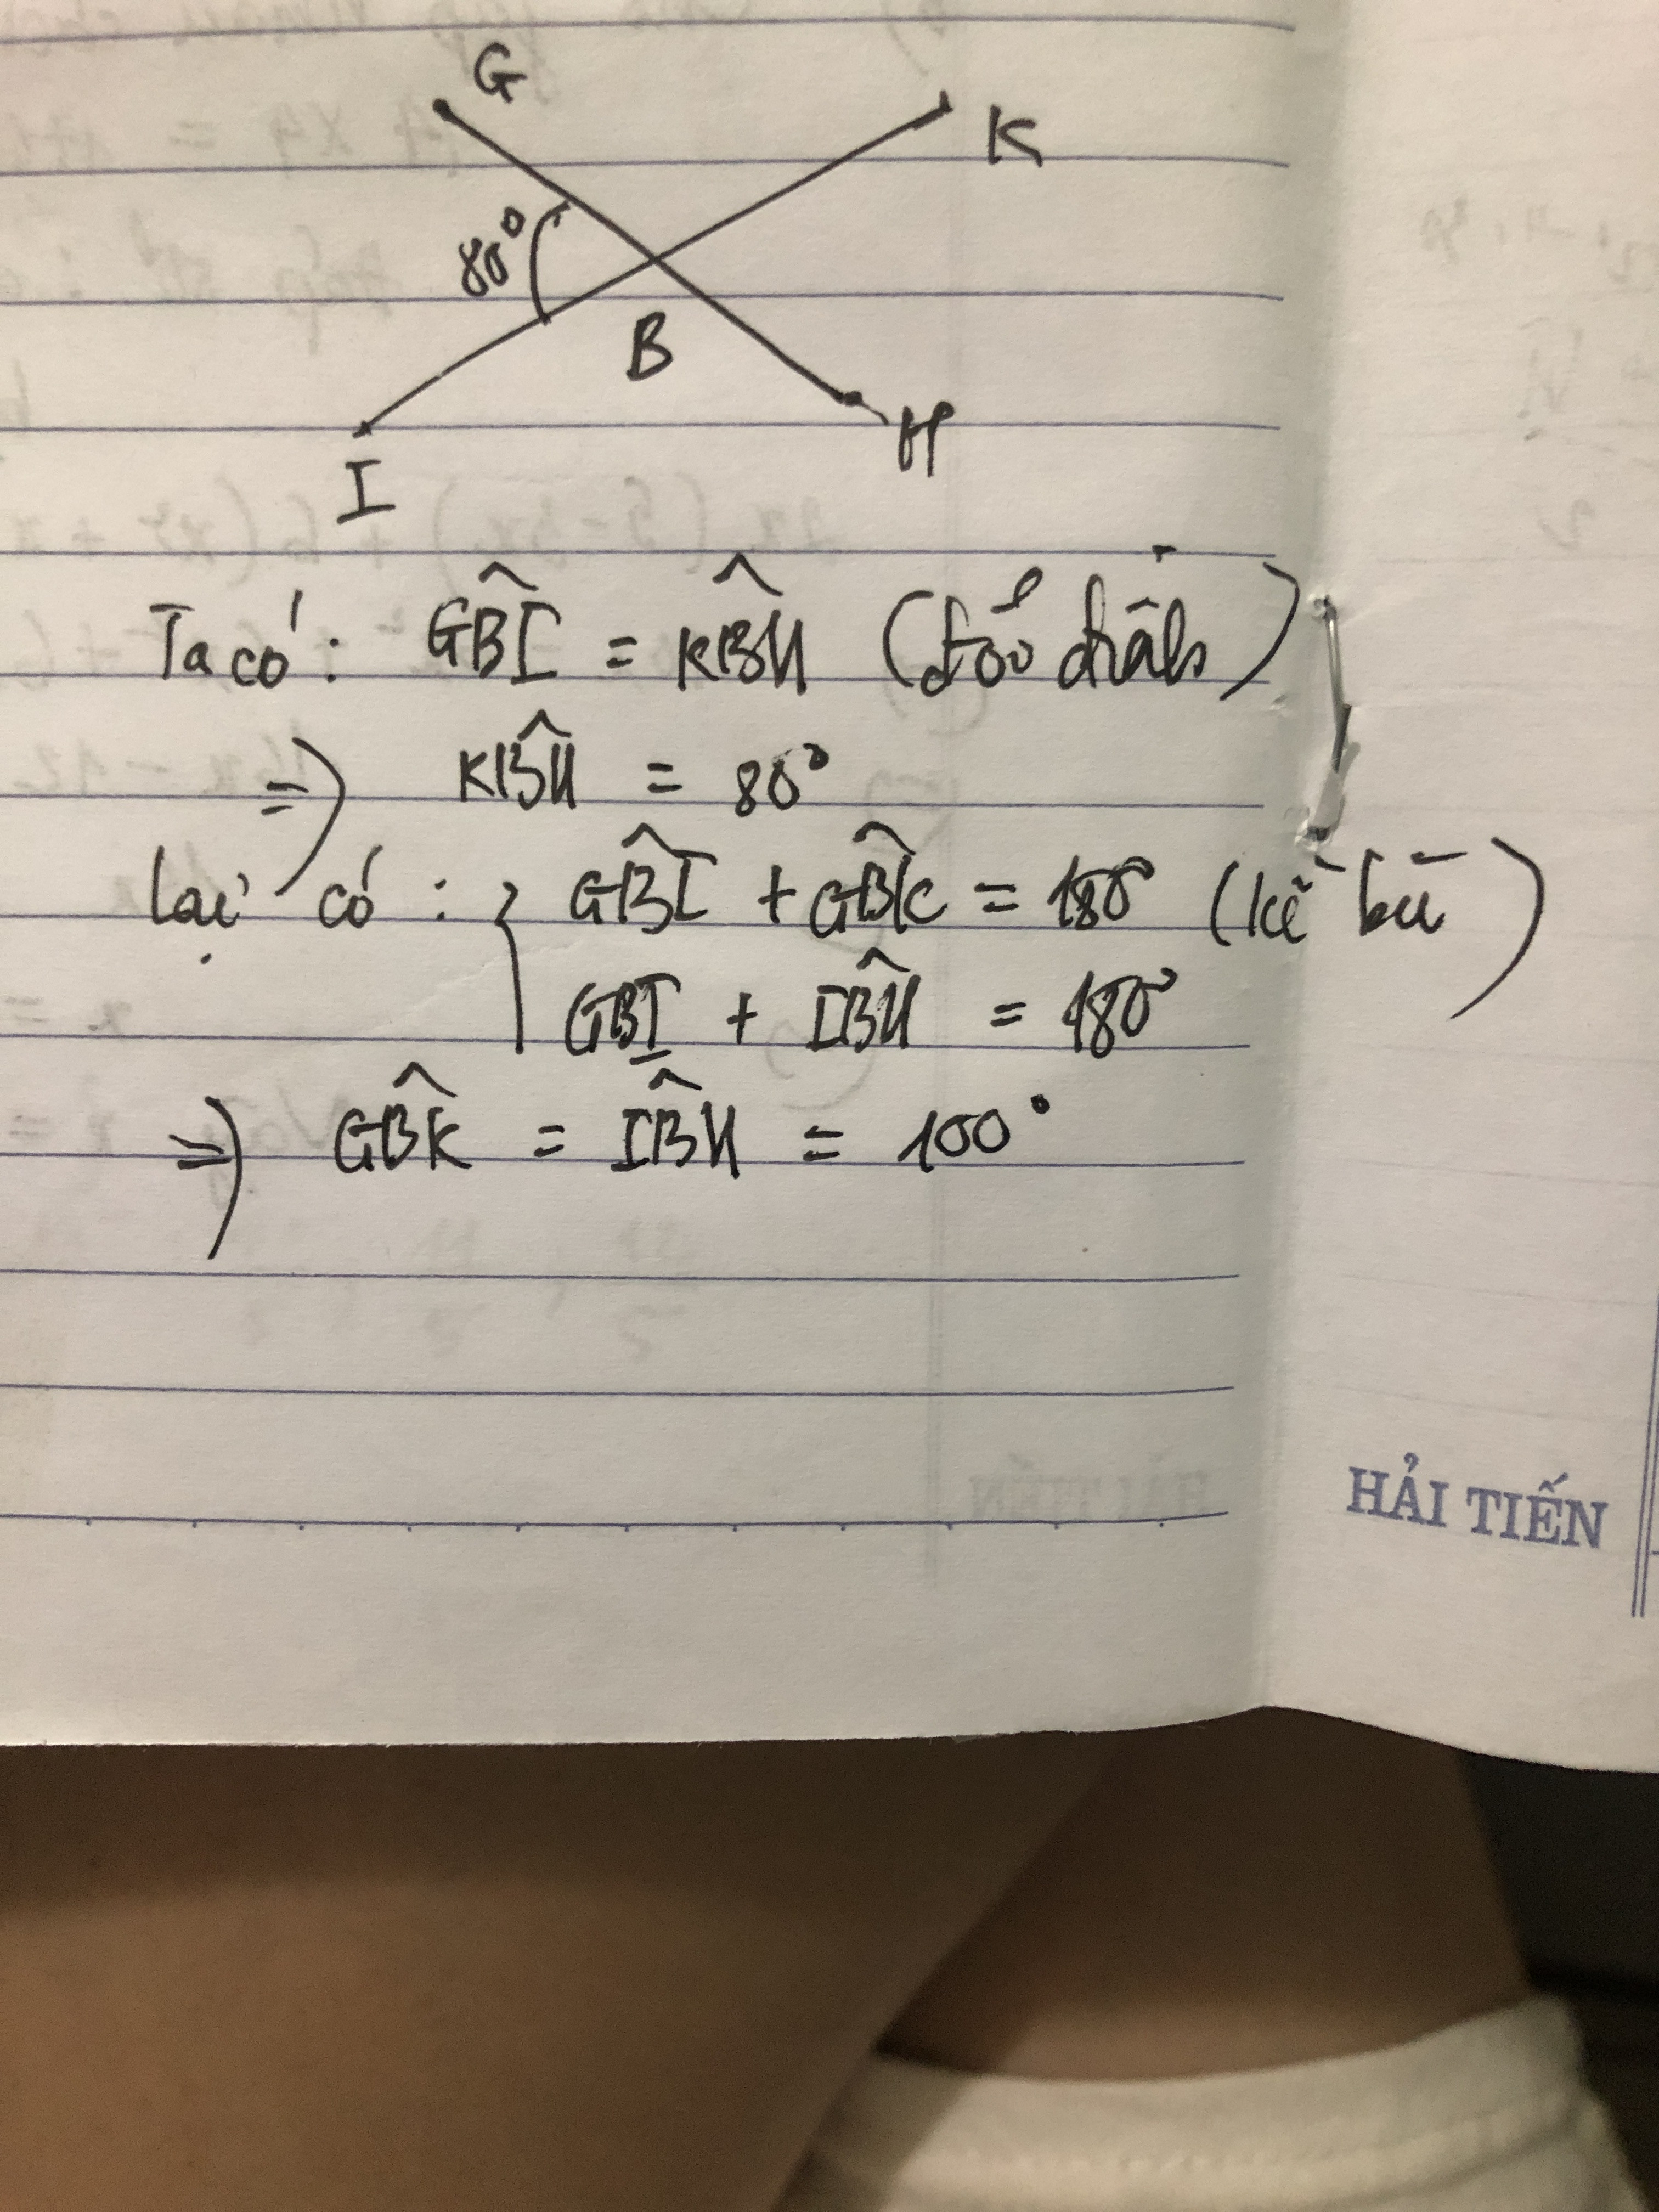 G
K
80°
B
I
H
Ta có: GBI = KBH (đối đỉnh)
=> KBH = 80°
Lại có: { GBI + GBK = 180° (kề bù)
GBI + IBH = 180°
=> GBK = IBH = 100°
HẢI TIẾN